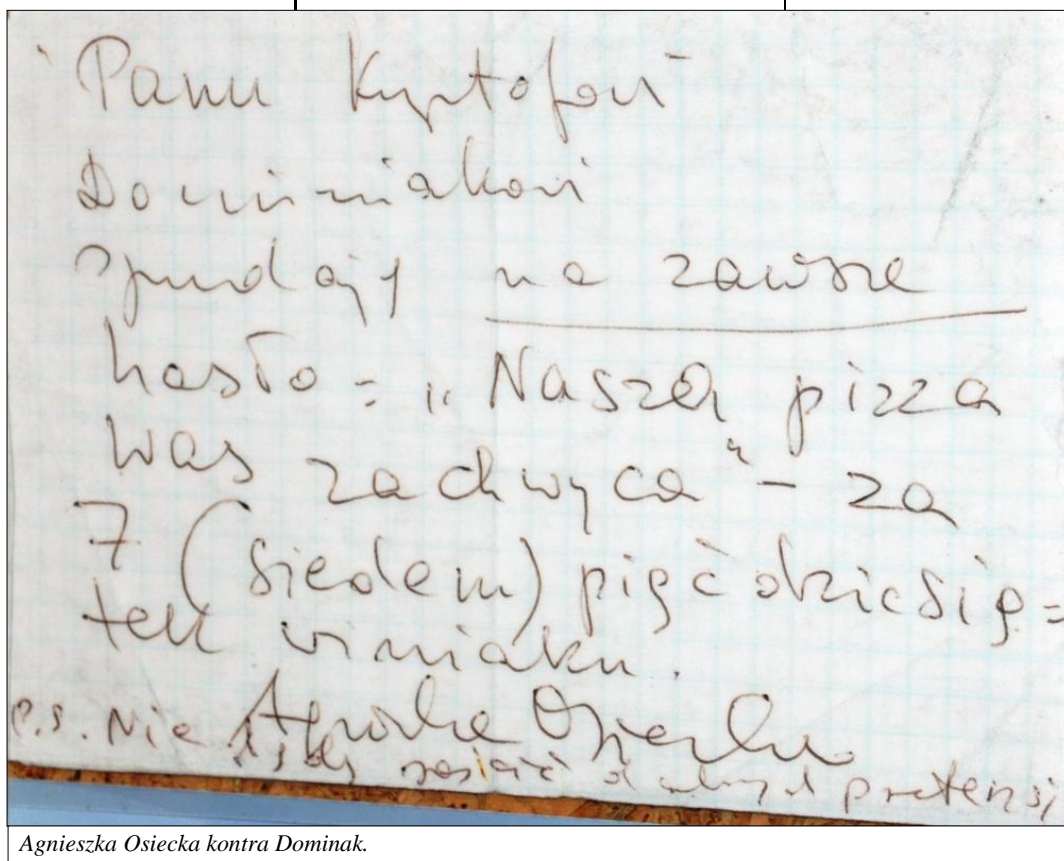 Panu Krzysztofowi
Dominiakowi
sprzedaję na zawsze
hasło = „Nasza pizza
was zachwyca" – za
7 (siedem) pięćdziesię=
tek winiaku.
Agnieszka Osiecka
P.S. Nie będę rościć żadnych pretensji
Agnieszka Osiecka kontra Dominak.